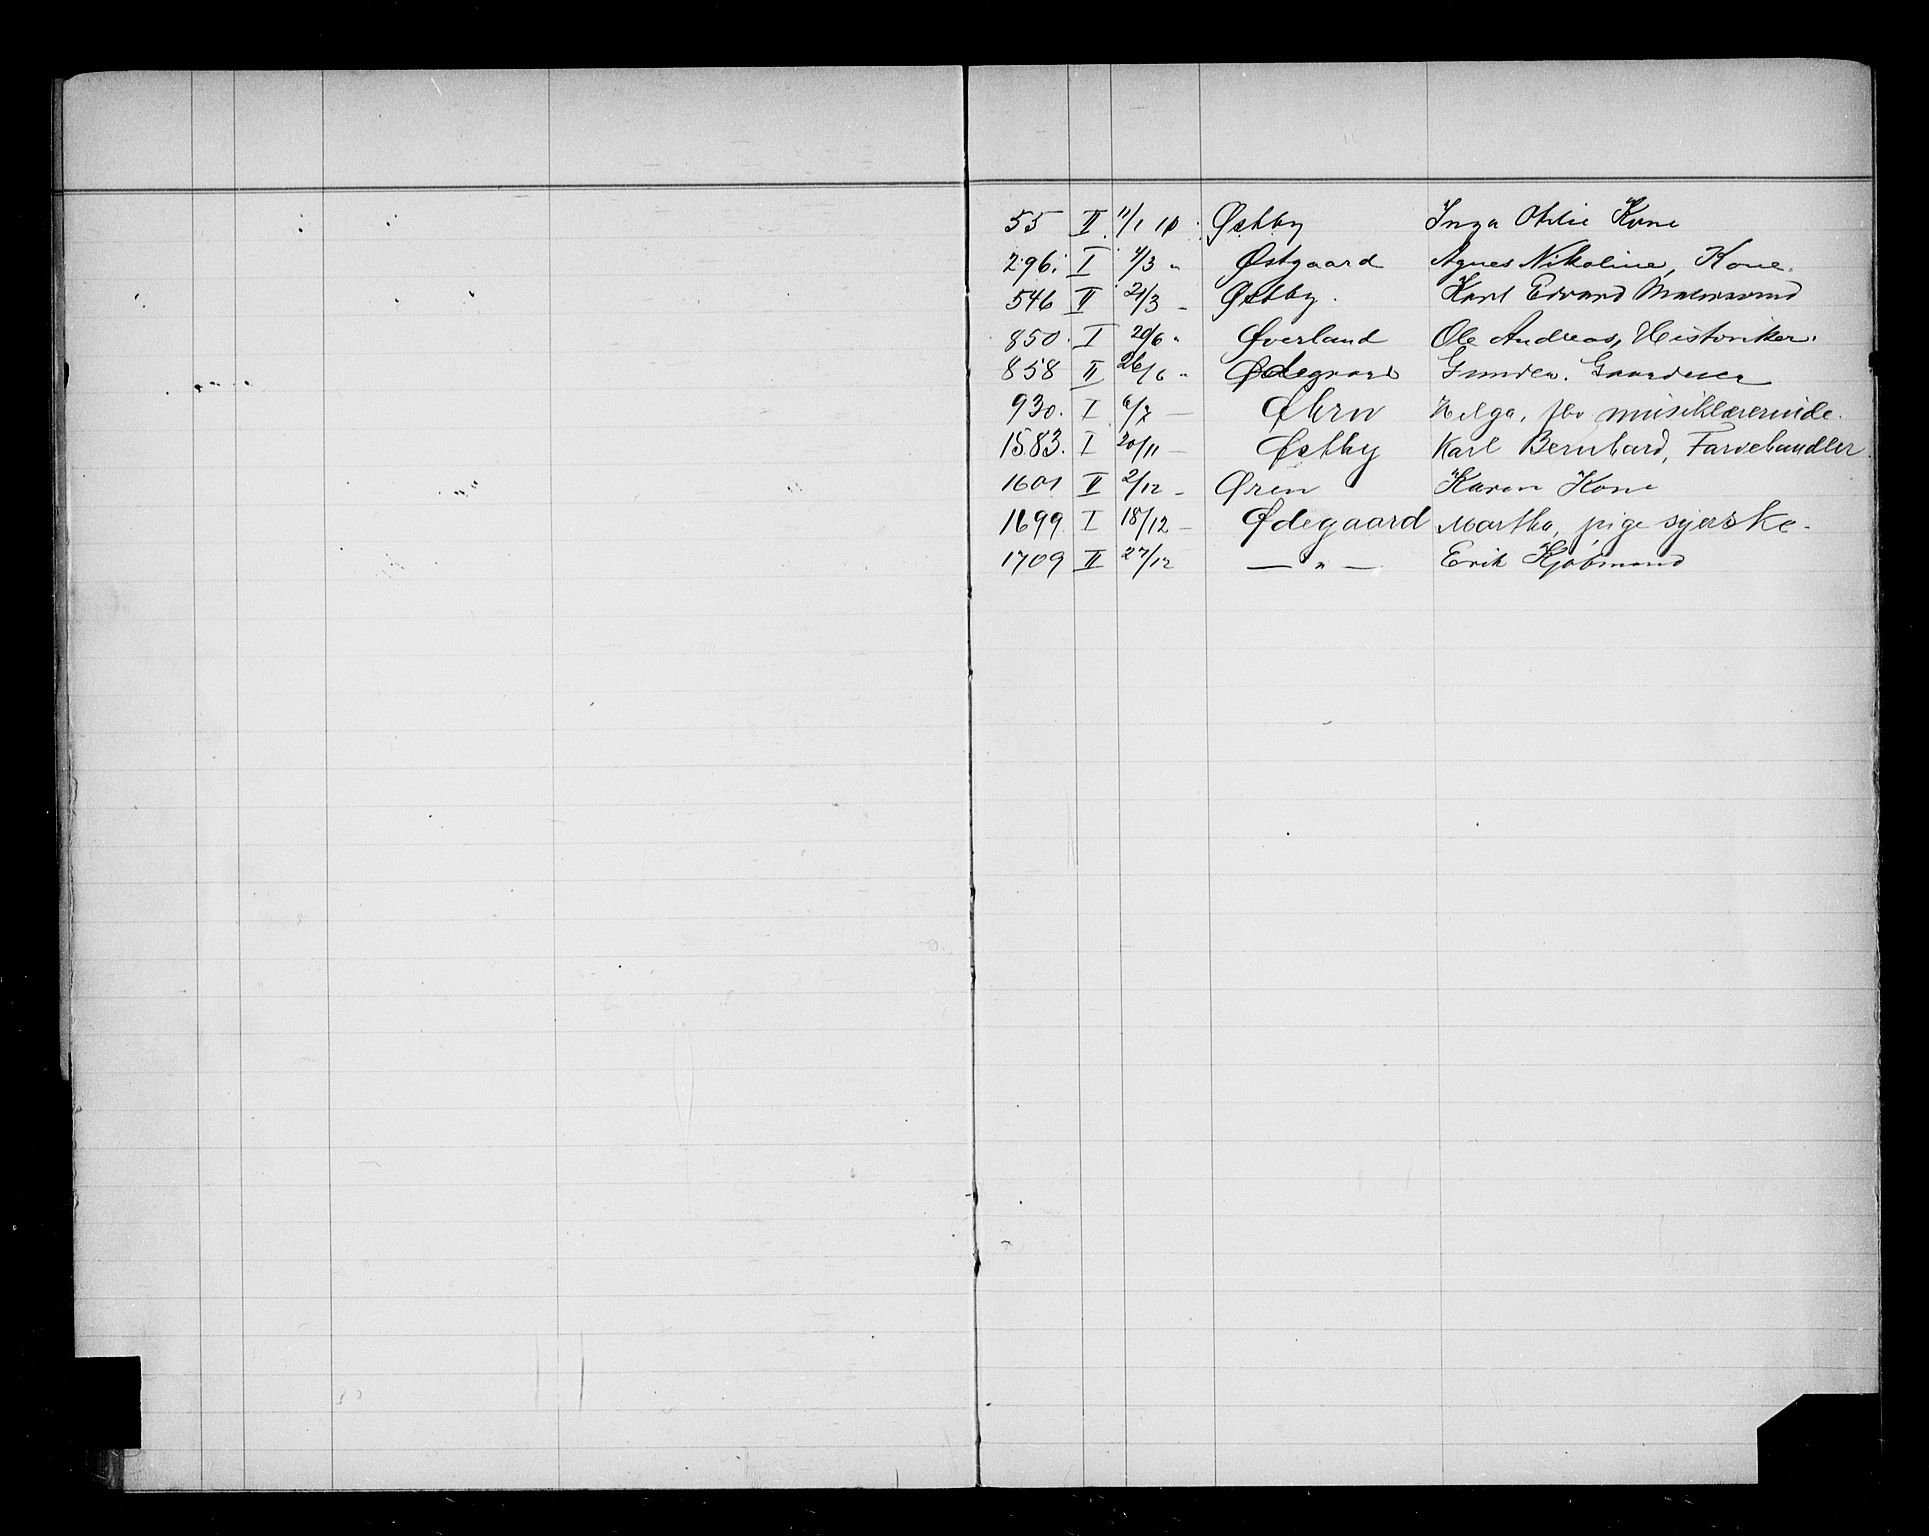 55 II 11/1 10 Østby Inga Otilie Kone
296. I 4/3 " Østgaard Agnes Nikoline, Kone.
546 II 21/3 - Østby. Karl Edvard
850. I 20/6 " Øverland Ole Andreas, Historiker.
858 II 26/6 " Ødegaard Gunder. Gaardeier
930. I 6/7 — Øhrn Helga, musiklærerinde.
1583. I 20/11 — Østby Karl Bernhard, Farvehandler
1601 II 2/12 - Øren Karen Kone
1699 I 18/12 - Ødegaard Martha, pige syerske.
1709 II 27/12 — " — Erik Kjøbmand